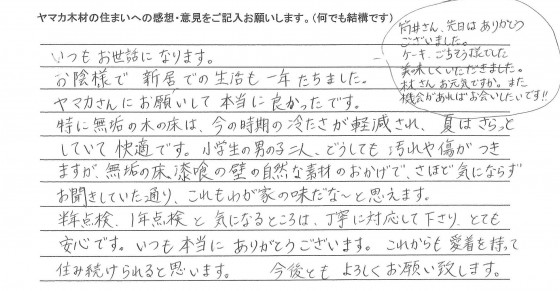 ヤマカ木材の住まいへの感想・意見をご記入お願いします。(何でも結構です)
いつもお世話になります。
お陰様で新居での生活も一年たちました。
ヤマカさんにお願いして本当に良かったです。
特に無垢の木の床は、今の時期の冷たさが軽減され、夏はさらっと
していて快適です。小学生の男の子二人、どうしても汚れや傷がつき
ますが、無垢の床、漆喰の壁の自然な素材のおかげで、さほど気にならず
お聞きしていた通り、これもわが家の味だな〜と思えます。
半年点検、1年点検と気になるところは、丁寧に対応して下さり、とても
安心です。いつも本当にありがとうございます。これからも愛着を持って
住み続けられると思います。 今後ともよろしくお願い致します。
筒井さん、先日はありがとう
ございました。
ケーキ、ごちそう様でした
美味しくいただきました。
林さんお元気ですか。また
機会があればお会いしたいです!!